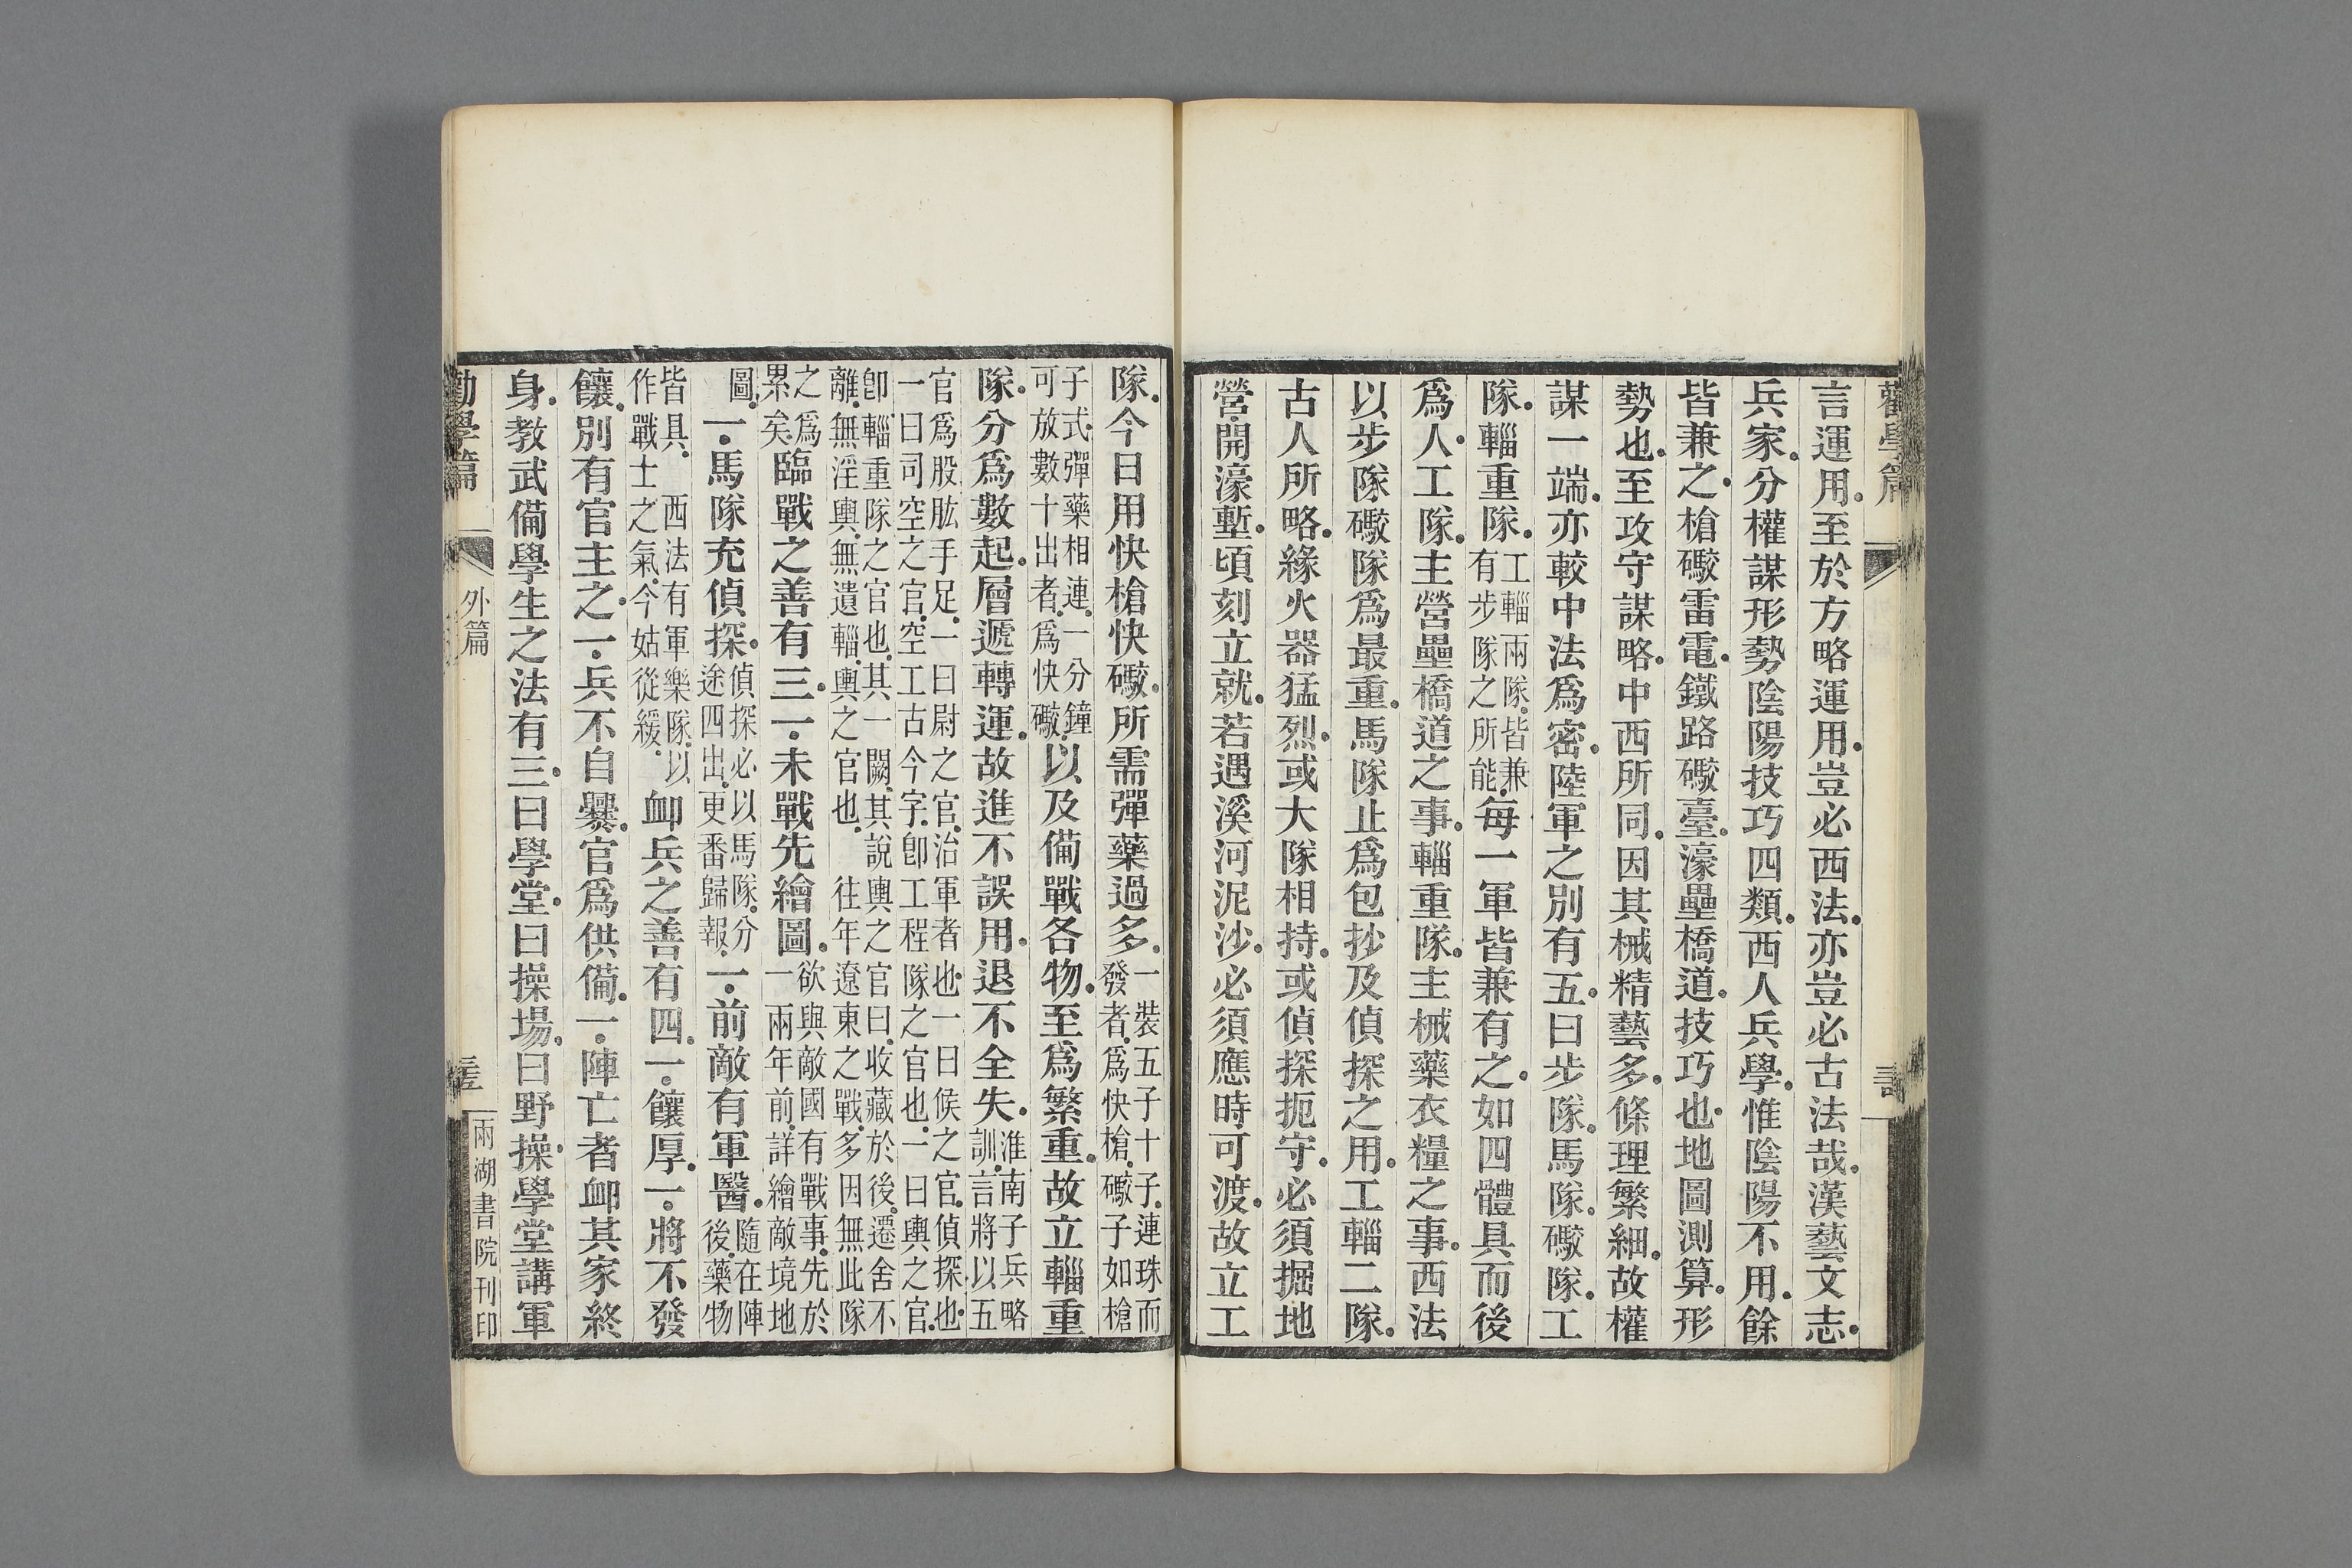 勸學篇
言運用。至於方略運用。豈必西法。亦豈必古法哉。漢藝文志。
兵家。分權謀形勢陰陽技巧四類。西人兵學。惟陰陽不用。餘
皆兼之。槍礮雷電。鐵路礮臺。濠壘橋道。技巧也。地圖測算。形
勢也。至攻守謀略。中西所同。因其械精藝多。條理繁細。故權
謀一端。亦較中法爲密。陸軍之別有五。曰步隊。馬隊。礮隊。工
隊。輜重隊。工輜兩隊。皆兼有步隊之所能。每一軍皆兼有之。如四體具而後
爲人。工隊。主營壘橋道之事。輜重隊。主械藥衣糧之事。西法
以步隊礮隊爲最重。馬隊止爲包抄及偵探之用。工輜二隊。
古人所略。緣火器猛烈。或大隊相持。或偵探扼守。必須掘地
營。開濠塹。頃刻立就。若遇溪河泥沙。必須應時可渡。故立工
隊。今日用快槍快礮。所需彈藥過多。一裝五子十子。連珠而發者。爲快槍。礮子如槍
子式。彈藥相連。一分鐘可放數十出者。爲快礮。以及備戰各物。至爲繁重。故立輜重
隊。分爲數起。層遞轉運。故進不誤用。退不全失。淮南子兵略訓。言將以五
官爲股肱手足。一曰尉之官。治軍者也。一曰候之官。偵探也。一曰司空之官。空工古今字。卽工程隊之官也。一曰輿之官。
卽輜重隊之官也。其一闕。其說輿之官曰。收藏於後。遷舍不離。無淫輿。無遺輜。輿之官也。往年遼東之戰。多因無此隊
之爲累矣。臨戰之善有三。一。未戰先繪圖。欲與敵國有戰事。先於一兩年前。詳繪敵境地
圖。一。馬隊充偵探。偵探必以馬隊。分途四出。更番歸報。一。前敵有軍醫。隨在陣後。藥物
皆具。西法有軍樂隊。以作戰士之氣。今姑從緩。卹兵之善有四。一。饟厚。一。將不發
饟。別有官主之。一。兵不自爨。官爲供備。一。陣亡者卹其家終
身。教武備學生之法有三。曰學堂。曰操場。曰野操。學堂講軍
勸學篇
外篇
兩湖書院刊印